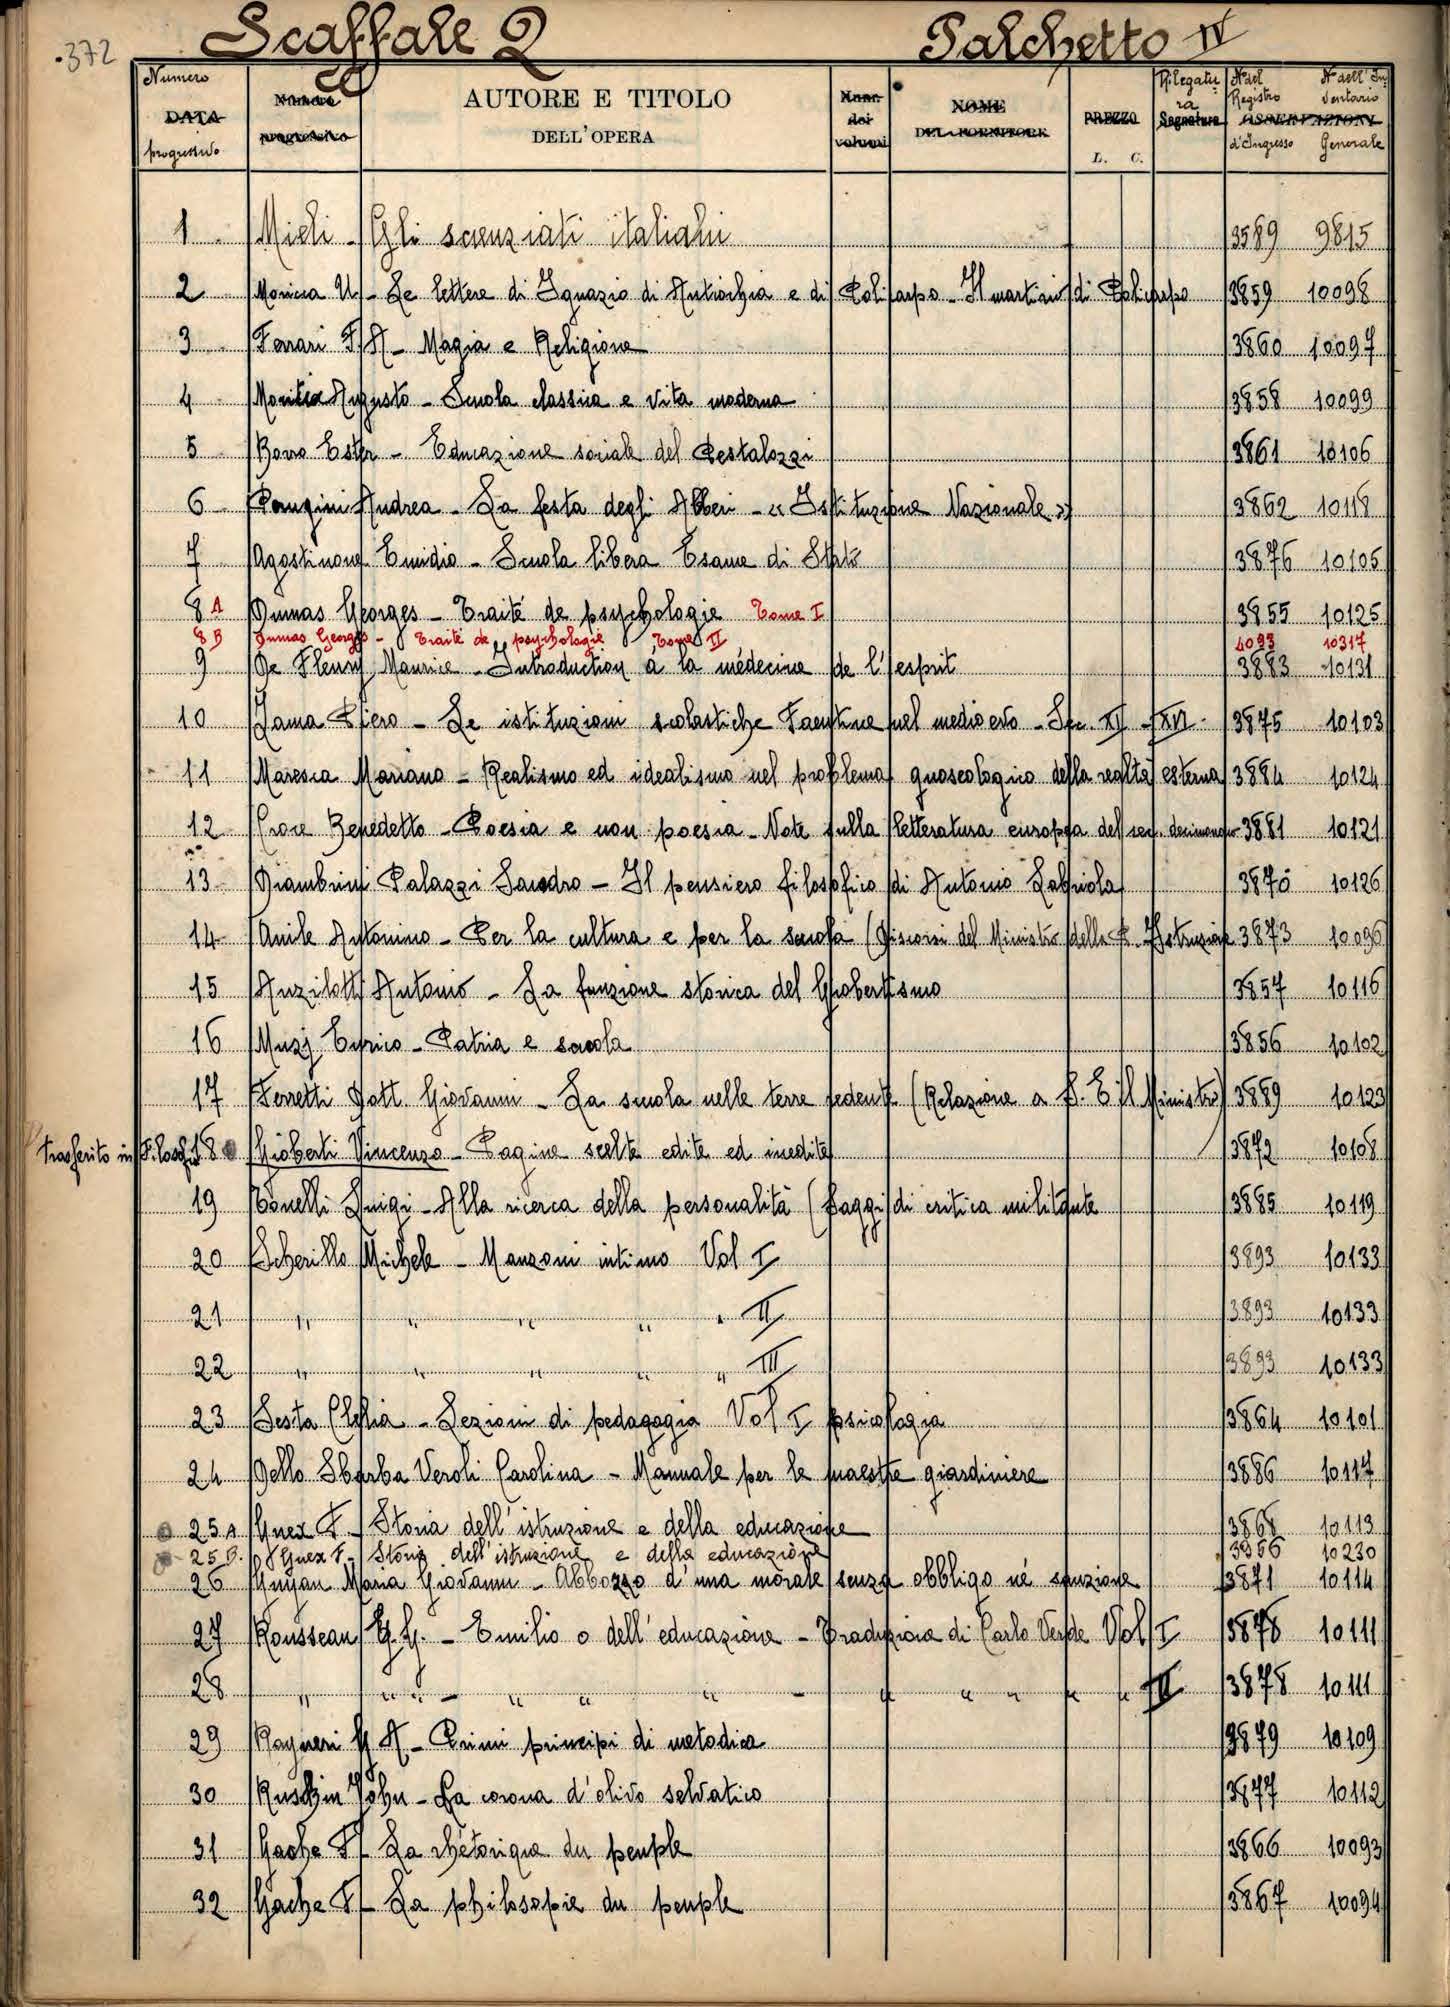 .372
Scaffale 2 Palchetto IV
Numero DATA progressivo
Numero progressivo
AUTORE E TITOLO
DELL'OPERA
Num. dei volumi
NOME DEL FORNITORE
PREZZO
L. C.
Rilegatura Segnatura
N° del Registro d'Ingresso
OSSERVAZIONI
N° dell'Inventario Generale
1 Mieli - Gli scienziati italiani 3589 9815
2 Moricca U - Le lettere di Ignazio di Antiochia e di Policarpo - Il martirio di Policarpo 3859 10098
3 Ferrari F. A - Magia e Religione 3860 10097
4 Augusto - Scuola classica e vita moderna 3858 10099
5 Ester - Educazione sociale del Pestalozzi 3861 10106
6 Andrea - La festa degli Alberi - « Istituzione Nazionale » 3862 10118
7 Agostinone Emidio - Scuola libera Esame di Stato 3876 10105
8 A Dumas Georges - Traité de psychologie Tome I 3855 10125
8 B Dumas Georges - Traité de psychologie Tome II 4093 10317
9 De Fleury Maurice - Introduction á la médecine de l'esprit 3883 10131
10 Zama Piero - Le istituzioni scolastiche Faentine nel medio evo - Sec. XI - XVI 3875 10103
11 Maresca Mariano - Realismo ed idealismo nel problema gnoseologico della realtà esterna 3884 10124
12 Croce Benedetto - Poesia e non poesia - Note sulla letteratura europea del sec. decimonono 3881 10121
13 Diambrini Palazzi Sandro - Il pensiero filosofico di Antonio Labriola 3870 10126
14 Anile Antonino - Per la cultura e per la scuola (Discorsi del Ministro della P. Istruzione 3873 10096
15 Anzilotti Antonio - La funzione storica del Giobertismo 3857 10116
16 Muzj Enrico - Patria e scuola 3856 10102
17 Ferretti Dott. Giovanni - La scuola nelle terre redente (Relazione a S. E il Ministro) 3889 10123
Trasferito in Filosofia 18 Gioberti Vincenzo - Pagine scelte edite ed inedite 3872 10108
19 Tonelli Luigi - Alla ricerca della personalità (Saggi di critica militante 3885 10119
20 Scherillo Michele - Manzoni intimo Vol I 3893 10133
21 " " " " " II 3893 10133
22 " " " " " III 3893 10133
23 Sesta Clelia - Lezioni di pedagogia Vol I psicologia 3864 10101
24 Dello Sbarba Veroli Carolina - Manuale per le maestre giardiniere 3886 10117
25 A Guex F. - Storia dell'istruzione e della educazione 3868 10113
25 B. Guex F. - Storia dell'istruzione e della educazione 3966 10230
26 Guyau Maria Giovanni - Abbozzo d'una morale senza obbligo né sanzione 3871 10114
27 Rousseau G. G. - Emilio o dell'educazione - Traduzione di Carlo Verde Vol I 3878 10111
28 " " " - " " " - " " " " " II 3878 10111
29 Rayneri G A - Primi principi di metodica 3879 10109
30 Ruschin John - La corona d'olivo selvatico 3877 10112
31 Gache F - La rhétorique du peuple 3866 10093
32 Gache F - La philosopie du peuple 3867 10094